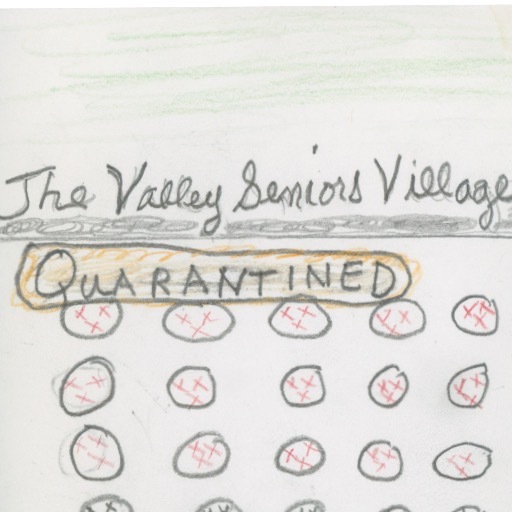 The Valley Seniors Village
QUARANTINED